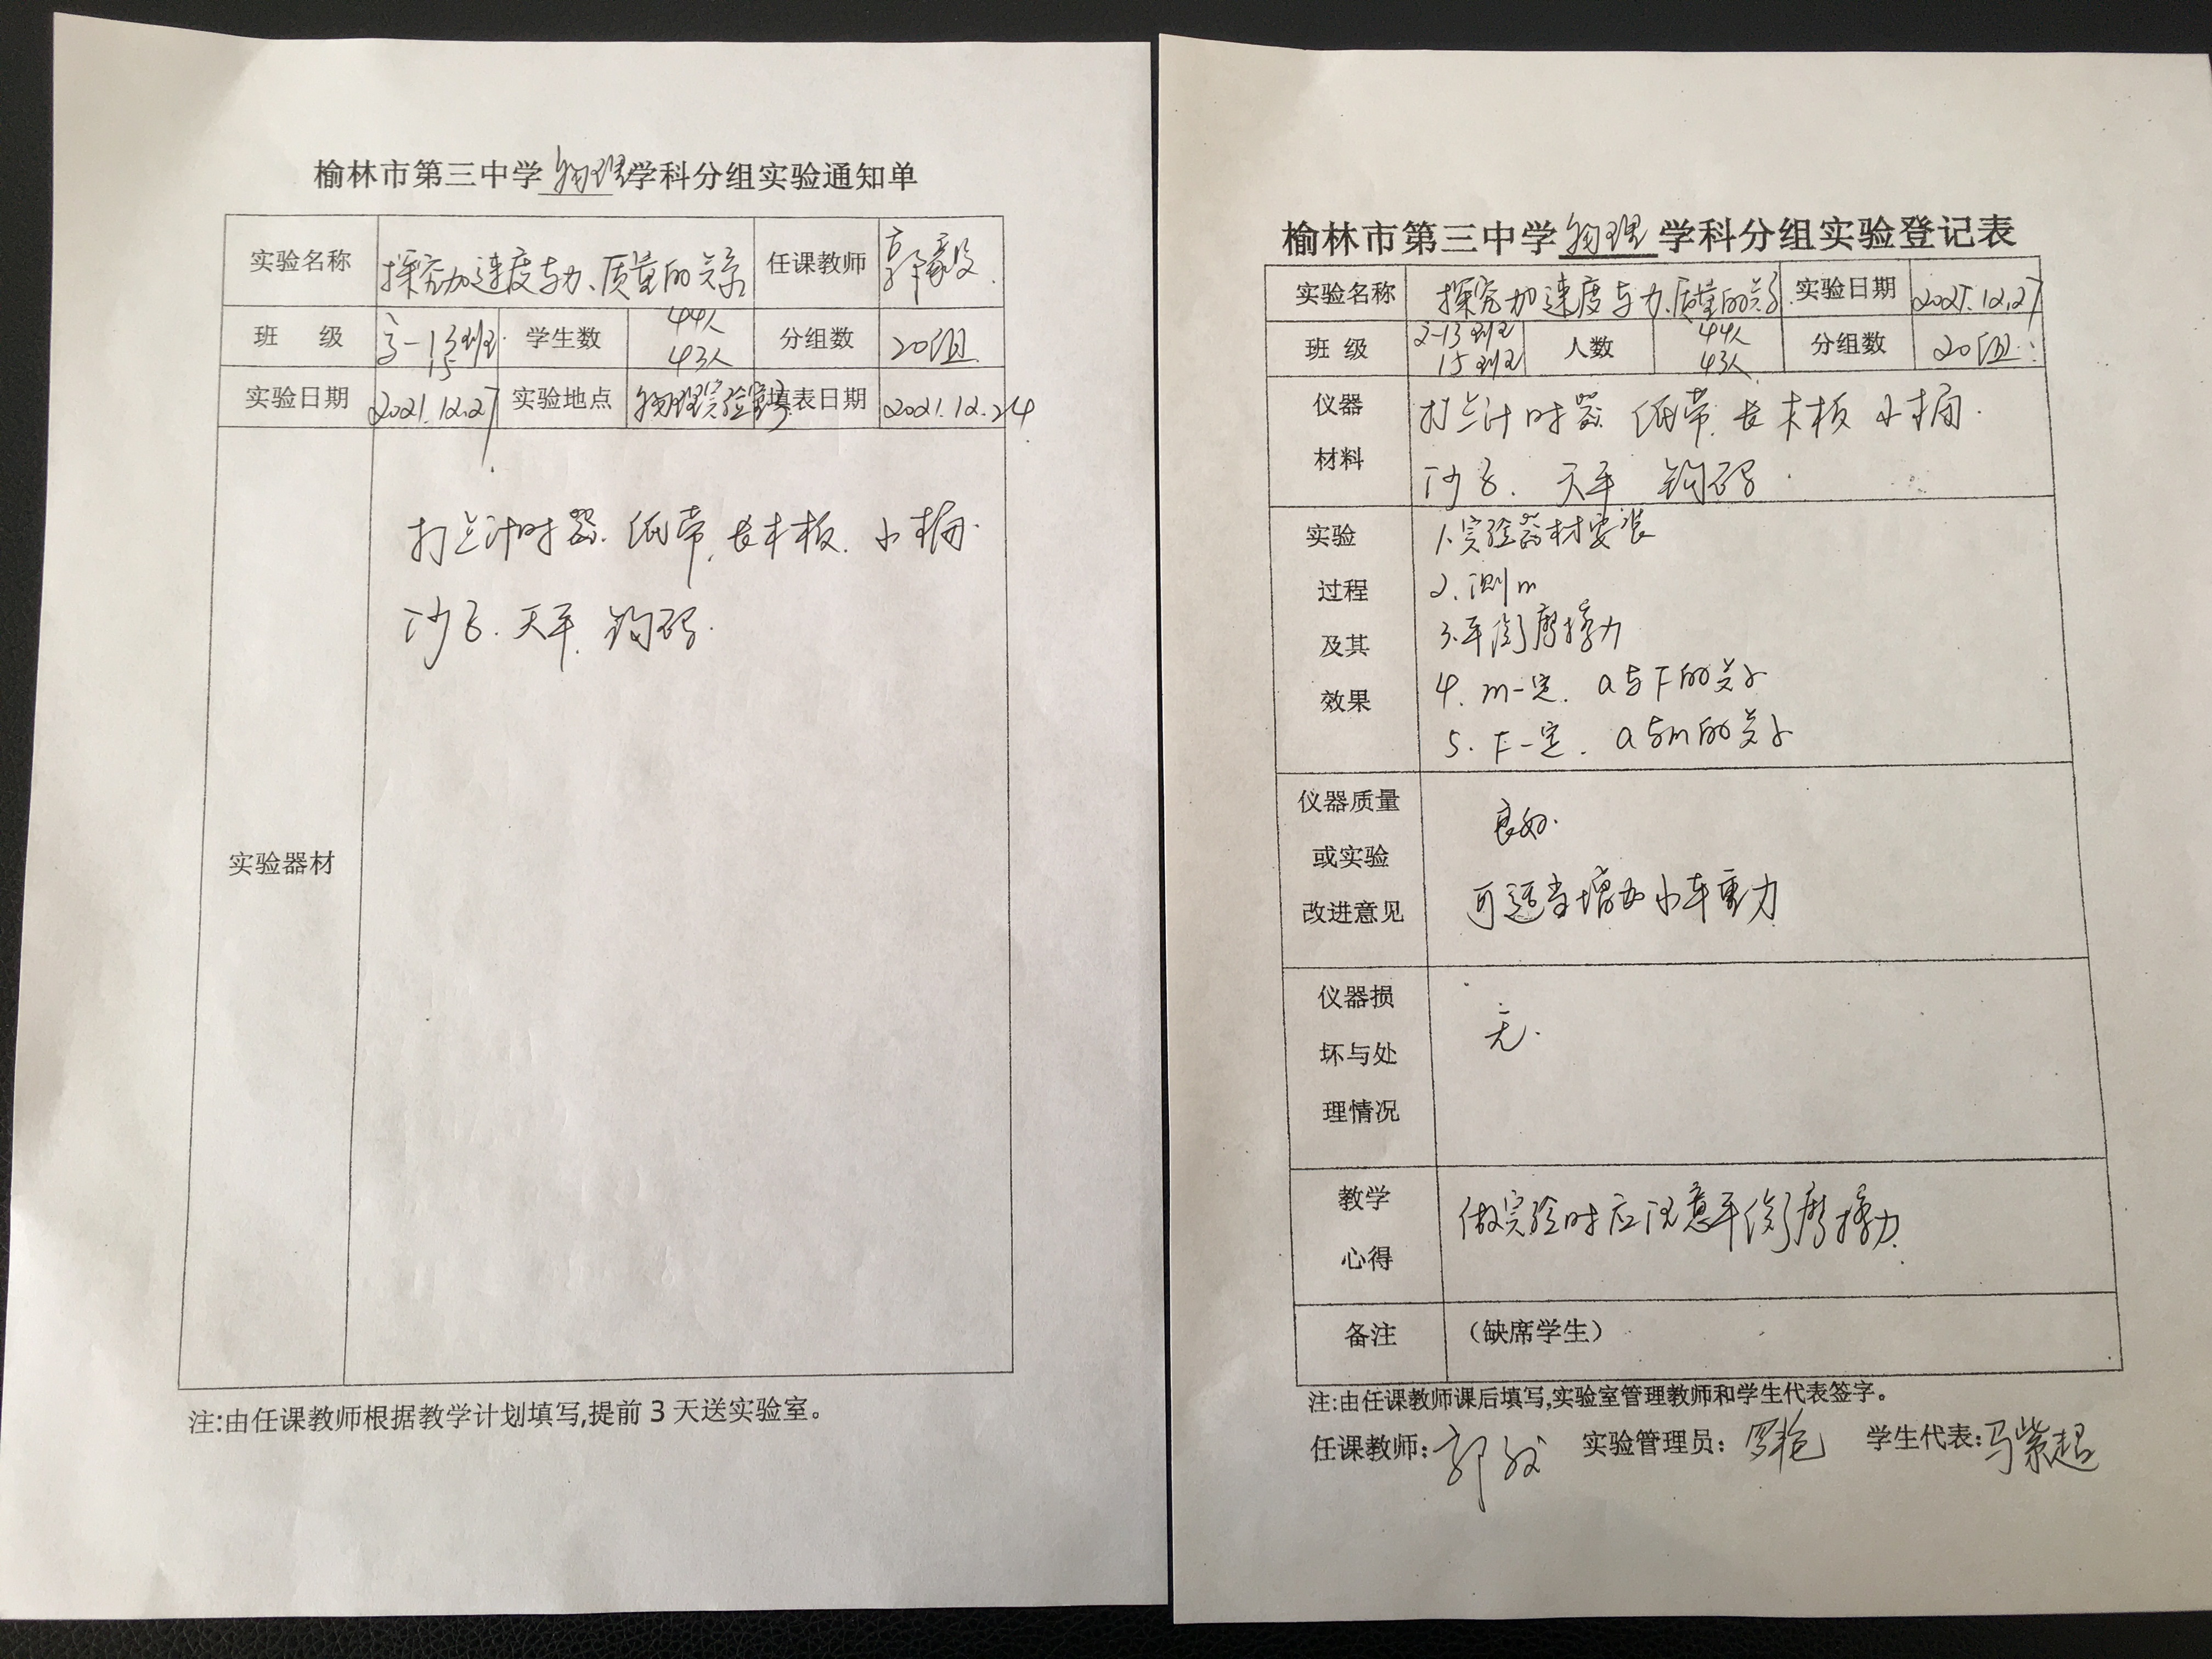 榆林市第三中学物理学科分组实验通知单
实验名称 探究加速度与力、质量的关系 任课教师 郭毅
班 级 高一13班 15 学生数 44人 43人 分组数 20组
实验日期 2021.12.27 实验地点 物理实验室 填表日期 2021.12.24
实验器材
打点计时器 纸带 长木板 小桶
沙子 天平 钩码
注:由任课教师根据教学计划填写,提前3天送实验室。
榆林市第三中学物理学科分组实验登记表
实验名称 探究加速度与力、质量的关系 实验日期 2021.12.27
班 级 13班 15班 人数 44人 43人 分组数 20组
仪器 打点计时器 纸带 长木板 小桶
材料 沙子 天平 钩码
实验 1.实验器材安装
过程 2.测m
及其 3.平衡摩擦力
效果 4.m一定.a与F的关系
5.F一定.a与m的关系
仪器质量 良好.
或实验
改进意见 可适当增加小车重力
仪器损
坏与处 无.
理情况
教学 做实验时应注意平衡摩擦力
心得
备注 (缺席学生)
注:由任课教师课后填写,实验室管理教师和学生代表签字。
任课教师:郭毅 实验管理员: 学生代表:马紫超